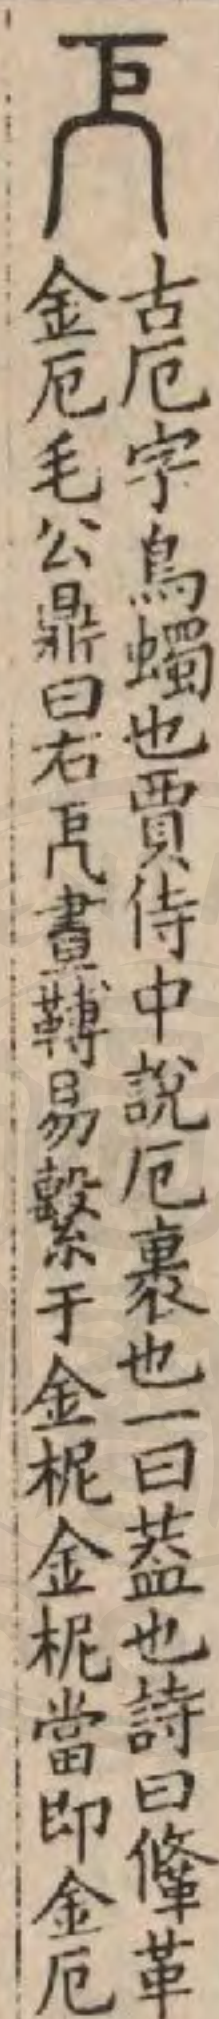 古厄字烏蠋也賈侍中說厄裹也一曰葢也詩曰鞗革
金厄毛公鼎曰右厄畫䩵易繫于金柅金柅當即金厄